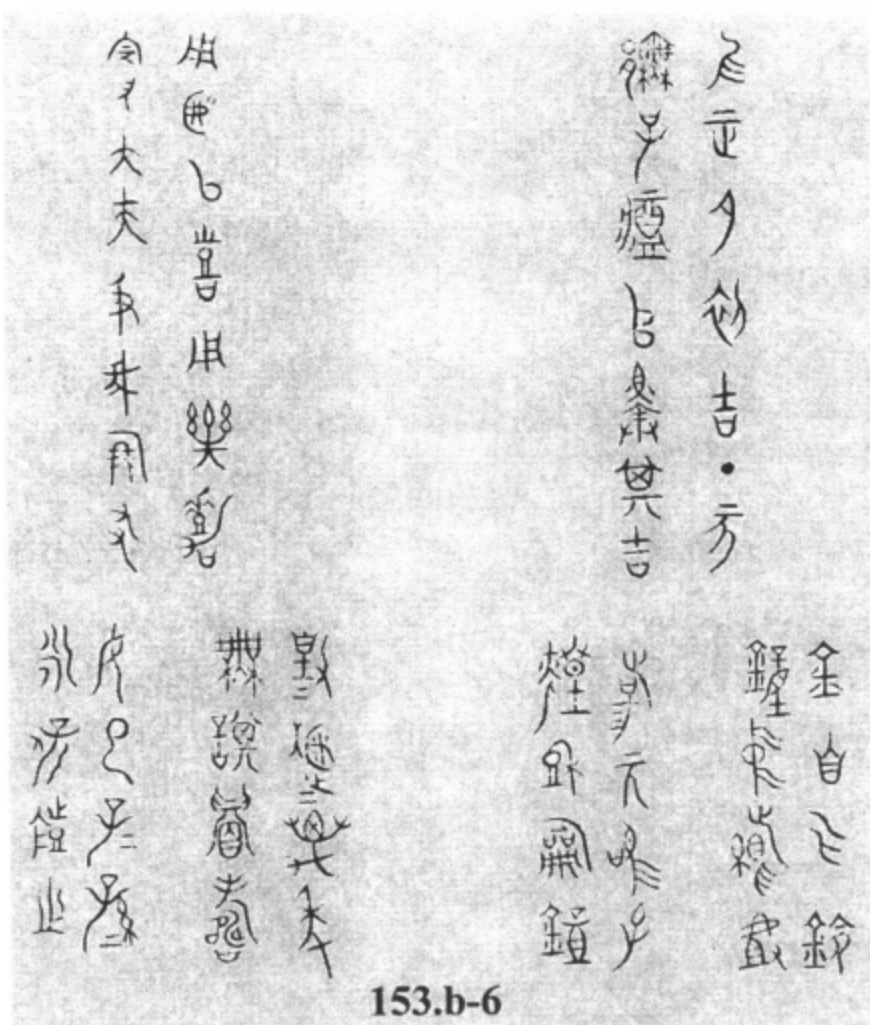 隹正月初吉丁亥
鄦子𥂗𠂤擇其吉
金自乍鈴
鐘中𩙿𠭯
昜元鳴孔
煌穆龢鐘
用匽㠯喜用樂嘉
賓大夫及我倗友
敳=趩=萬年
無諆眉壽
母已子=孫=
永保鼓之
153.b-6